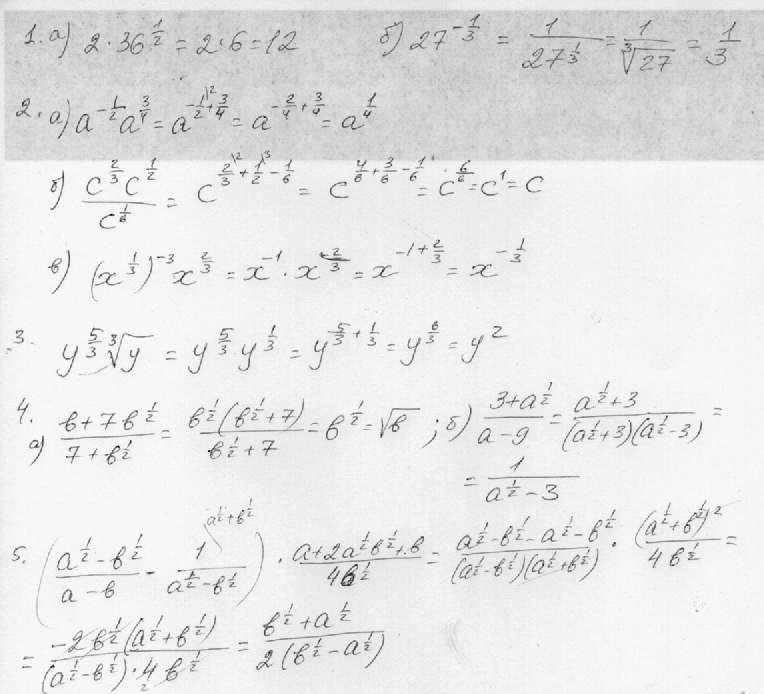 1. а) 2·36^{1/2} = 2·6 = 12    б) 27^{-1/3} = 1/27^{1/3} = 1/∛27 = 1/3
2. а) a^{-1/2} a^{3/4} = a^{-1/2^{\2} + 3/4} = a^{-2/4 + 3/4} = a^{1/4}
б) (c^{2/3} c^{1/2})/c^{1/6} = c^{2/3^{\2} + 1/2^{\3} - 1/6} = c^{4/6 + 3/6 - 1/6} = c^{6/6} = c^1 = c
в) (x^{1/3})^{-3} x^{2/3} = x^{-1} · x^{2/3} = x^{-1 + 2/3} = x^{-1/3}
3. y^{5/3} ∛y = y^{5/3} y^{1/3} = y^{5/3 + 1/3} = y^{6/3} = y^2
4.
а) (в + 7в^{1/2})/(7 + в^{1/2}) = (в^{1/2}(в^{1/2} + 7))/(в^{1/2} + 7) = в^{1/2} = √в ; б) (3 + a^{1/2})/(a - 9) = (a^{1/2} + 3)/((a^{1/2} + 3)(a^{1/2} - 3)) =
= 1/(a^{1/2} - 3)
a^{1/2} + в^{1/2}
5. ((a^{1/2} - в^{1/2})/(a - в) - 1/(a^{1/2} - в^{1/2})) · (a + 2a^{1/2}в^{1/2} + в)/(4в^{1/2}) = (a^{1/2} - в^{1/2} - a^{1/2} - в^{1/2})/((a^{1/2} - в^{1/2})(a^{1/2} + в^{1/2})) · (a^{1/2} + в^{1/2})^2/(4в^{1/2}) =
= (-2в^{1/2}(a^{1/2} + в^{1/2}))/((a^{1/2} - в^{1/2}) · 4 в^{1/2}) = (в^{1/2} + a^{1/2})/(2(в^{1/2} - a^{1/2}))
2